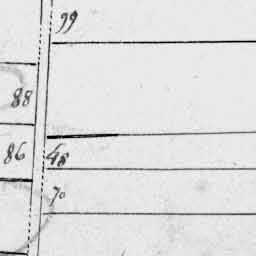 99
88
86
48
70